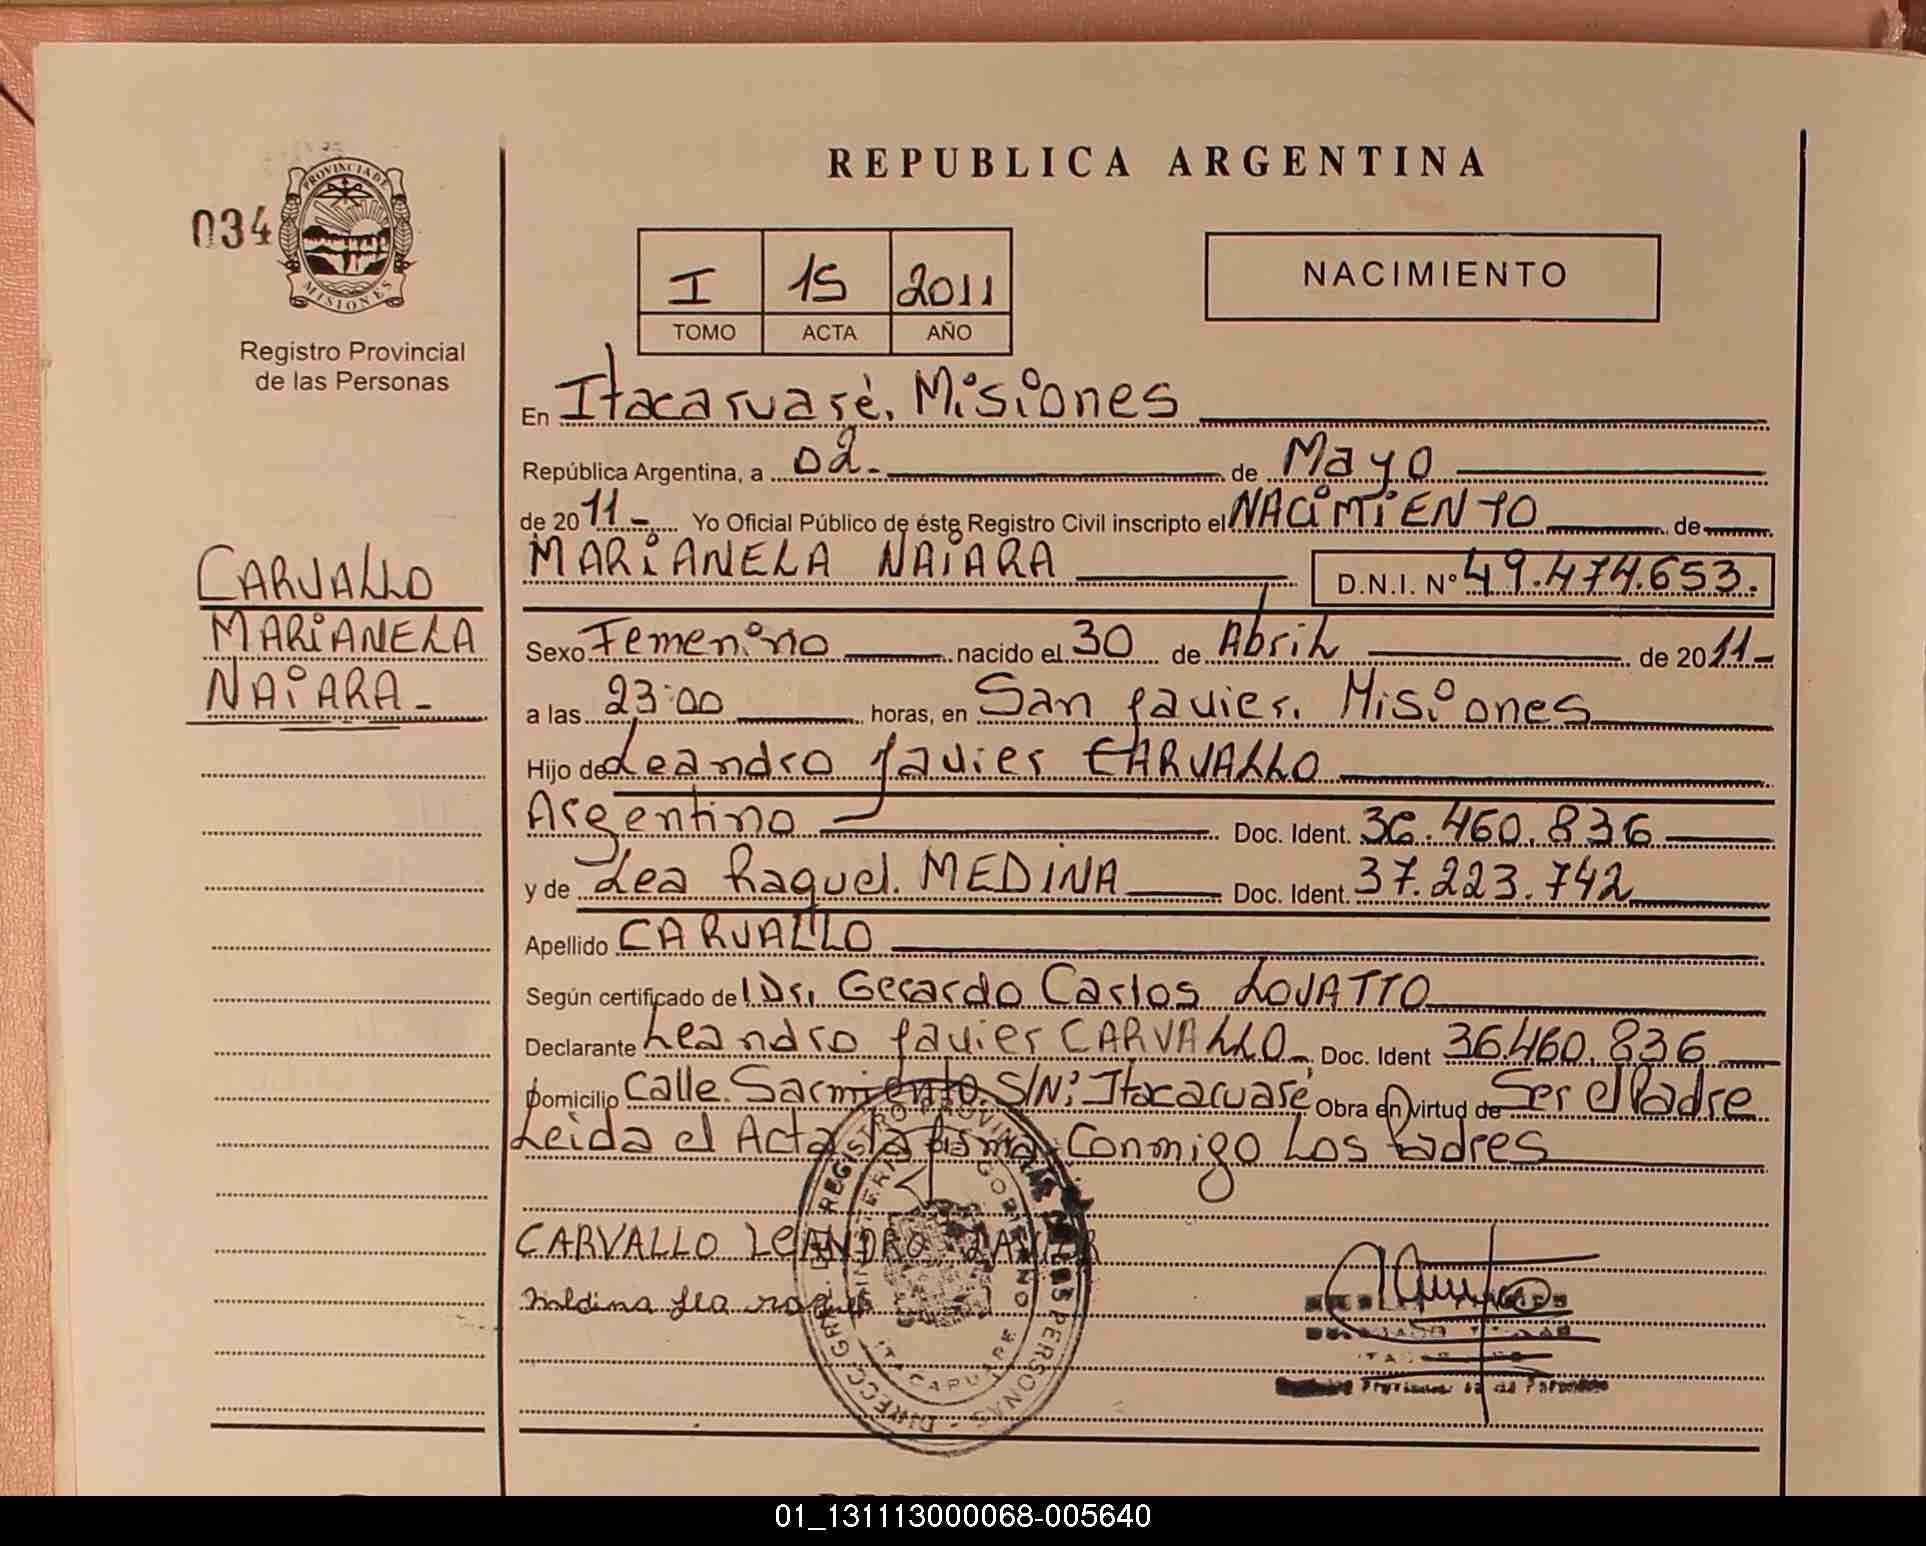 REPUBLICA ARGENTINA
034
PROVINCIA DE
MISIONES
Registro Provincial
de las Personas
I 15 2011
TOMO ACTA AÑO
NACIMIENTO
En Itacaruaré, Misiones
República Argentina, a 02- de Mayo
de 2011- Yo Oficial Público de éste Registro Civil inscripto el NACIMIENTO de
MARIANELA NAIARA D.N.I. Nº 49.474.653.
CARVALLO
MARIANELA
NAIARA-
Sexo Femenino nacido el 30 de Abril de 2011-
a las 23:00 horas, en San Javier, Misiones
Hijo de Leandro Javier CARVALLO
Argentino Doc. Ident. 36.460.836
y de Lea Raquel. MEDINA Doc. Ident. 37.223.742
Apellido CARVALLO
Según certificado de Dr. Gerardo Carlos LOVATTO
Declarante Leandro Javier CARVALLO Doc. Ident 36.460.836
Domicilio Calle. Sarmiento. S/N; Itacaruaré Obra en virtud de Ser el Padre
Leida el Acta la firma Conmigo Los Padres
CARVALLO LEANDRO JAVIER
Medina Lea raquel
DIRECC. GRAL. DEL REGISTRO PROVINCIAL DE LAS PERSONAS
MINISTERIO DE GOBIERNO
ITACARUARE
01_131113000068-005640